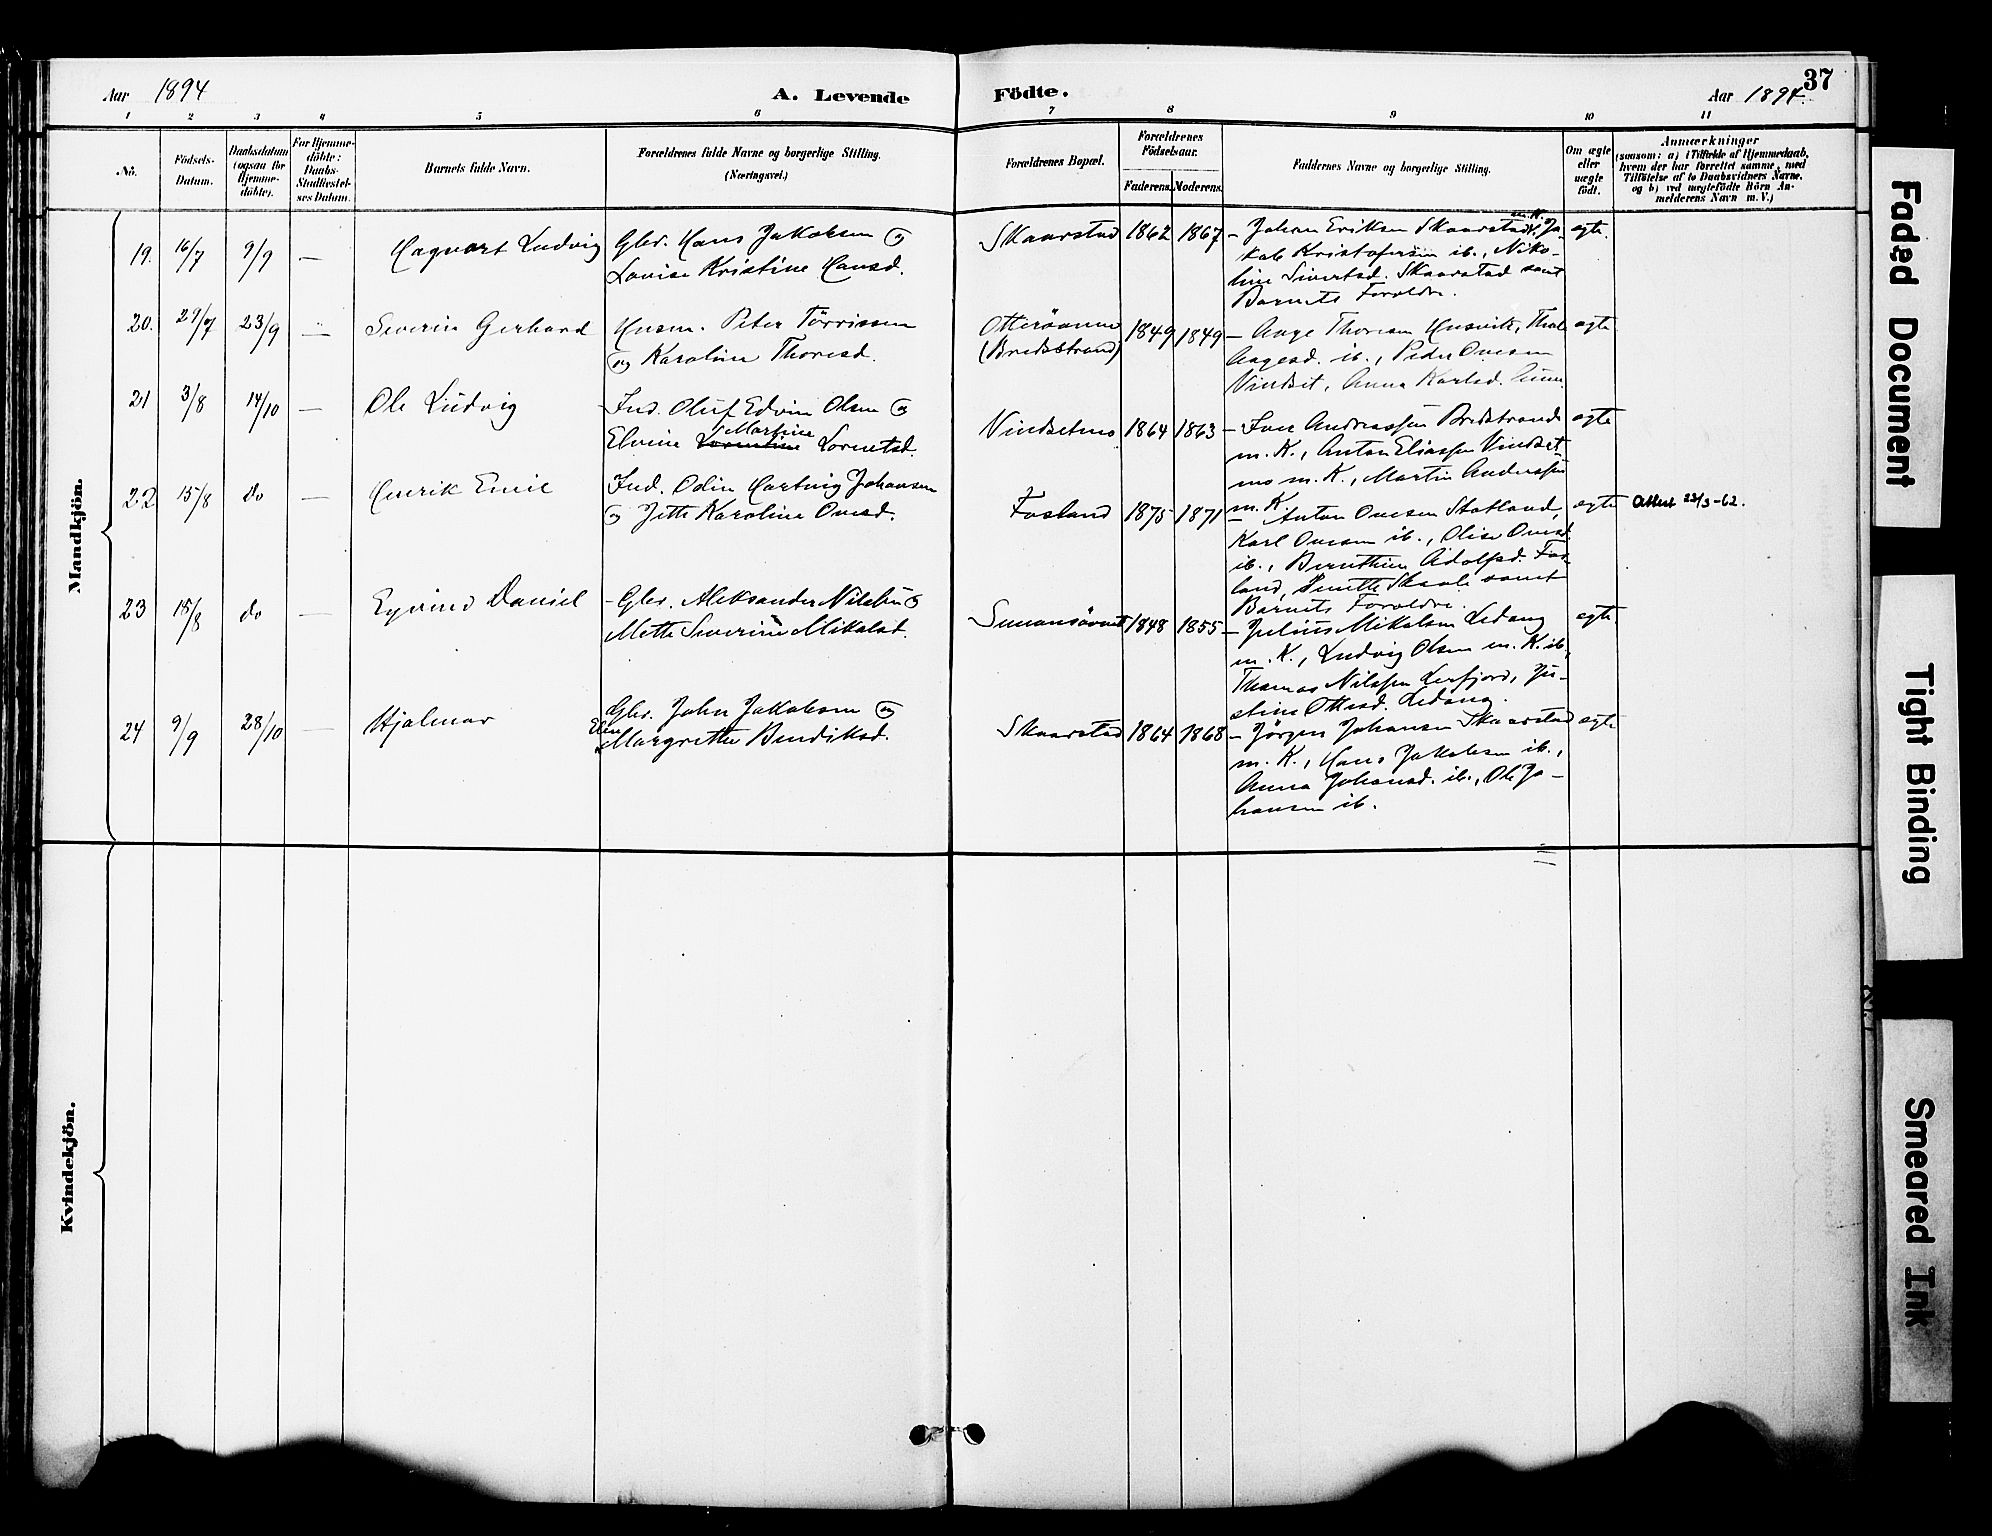 Aar 1894
A. Levende Födte.
Aar 1894.
37
1 2 3 4 5 6 7 8 9 10 11
No.
Födsels-
Datum.
Daabsdatum
(ogsaa for
Hjemme-
döbte).
For Hjemme-
döbte:
Daabs-
Stadfæstel-
ses Datum.
Barnets fulde Navn.
Forældrenes fulde Navne og borgerlige Stilling.
(Næringsvei.)
Forældrenes Bopæl.
Forældrenes
Födselsaar.
Faderens. Moderens.
Faddernes Navne og borgerlige Stilling.
Om ægte
eller
uægte
födt.
Anmærkninger
(saasom: a) i Tilfælde af Hjemmedaab,
hvem der har forrettet samme, med
Tilföielse af to Daabsvidners Navne,
og b) ved uægtefödte Börn An-
melderens Navn m. V.)
Mandkjön.
19. 16/7 9/9 — Hagvart Ludvig
Gbr. Hans Jakobsen og
Lovise Kristine Hansd.
Skaarstad 1862 1867
– Johan Eriksen Skaarstad m. K., Ja-
kob Kristofersen ib., Niko-
line Sivertsd. Skaarstad samt
Barnets Foreldre.
egte.
20. 27/7 23/9 — Severin Gerhard
Husm. Peter Törrissen
og Karoline Thoresd.
Otterøen
(Bredstrand) 1849 1849
– Aage Thoresen Husvik, Thal
Aagesd. ib., Peder Ovesen
Vindset, Anna Karlsd.
egte
21 3/8 14/10 — Ole Ludvig
Ind. Oluf Edvin Olsen og
Elvine Martine Lorentsd.
Vindsetmo 1864 1863
– Iver Andreassen Bredstrand
m. K., Anton Eliassen Vindset
mo m. K., Martin Anderssen
m. K.
egte
22 15/8 do — Henrik Emil
Ind. Odin Hartvig Johansen
og Jette Karoline Ovesd.
Fosland 1875 1871
– Anton Ovesen Statland,
Karl Ovesen ib., Olise Ovesd.
ib., Bernthine Adolfsd. Fos-
land, Skaale samt
Barnets Foreldre.
egte
Attest 23/3-62.
23 15/8 do — Eyvind Daniel
– Gbr. Aleksander Nilssen og
Mette Severine Mikalsd.
1848 1855
– Julius Mikalsen Ledang
m. K., Ludvig Olsen m. K. ib.,
Thomas Nilssen Lerfjord, Ju-
stine Ottesd. Ledang.
egte
24 9/9 28/10 — Hjalmar
Gbr. John Jakobsen og
Eline Margrethe Bendiksd.
Skaarstad 1864 1868
– Jørgen Johansen Skaarstad
m. K., Hans Jakobsen ib.,
Anna Johansd. ib., Ole Jo-
hansen ib.
egte
Kvindekjön.
Faded Document
Tight Binding
Smeared Ink